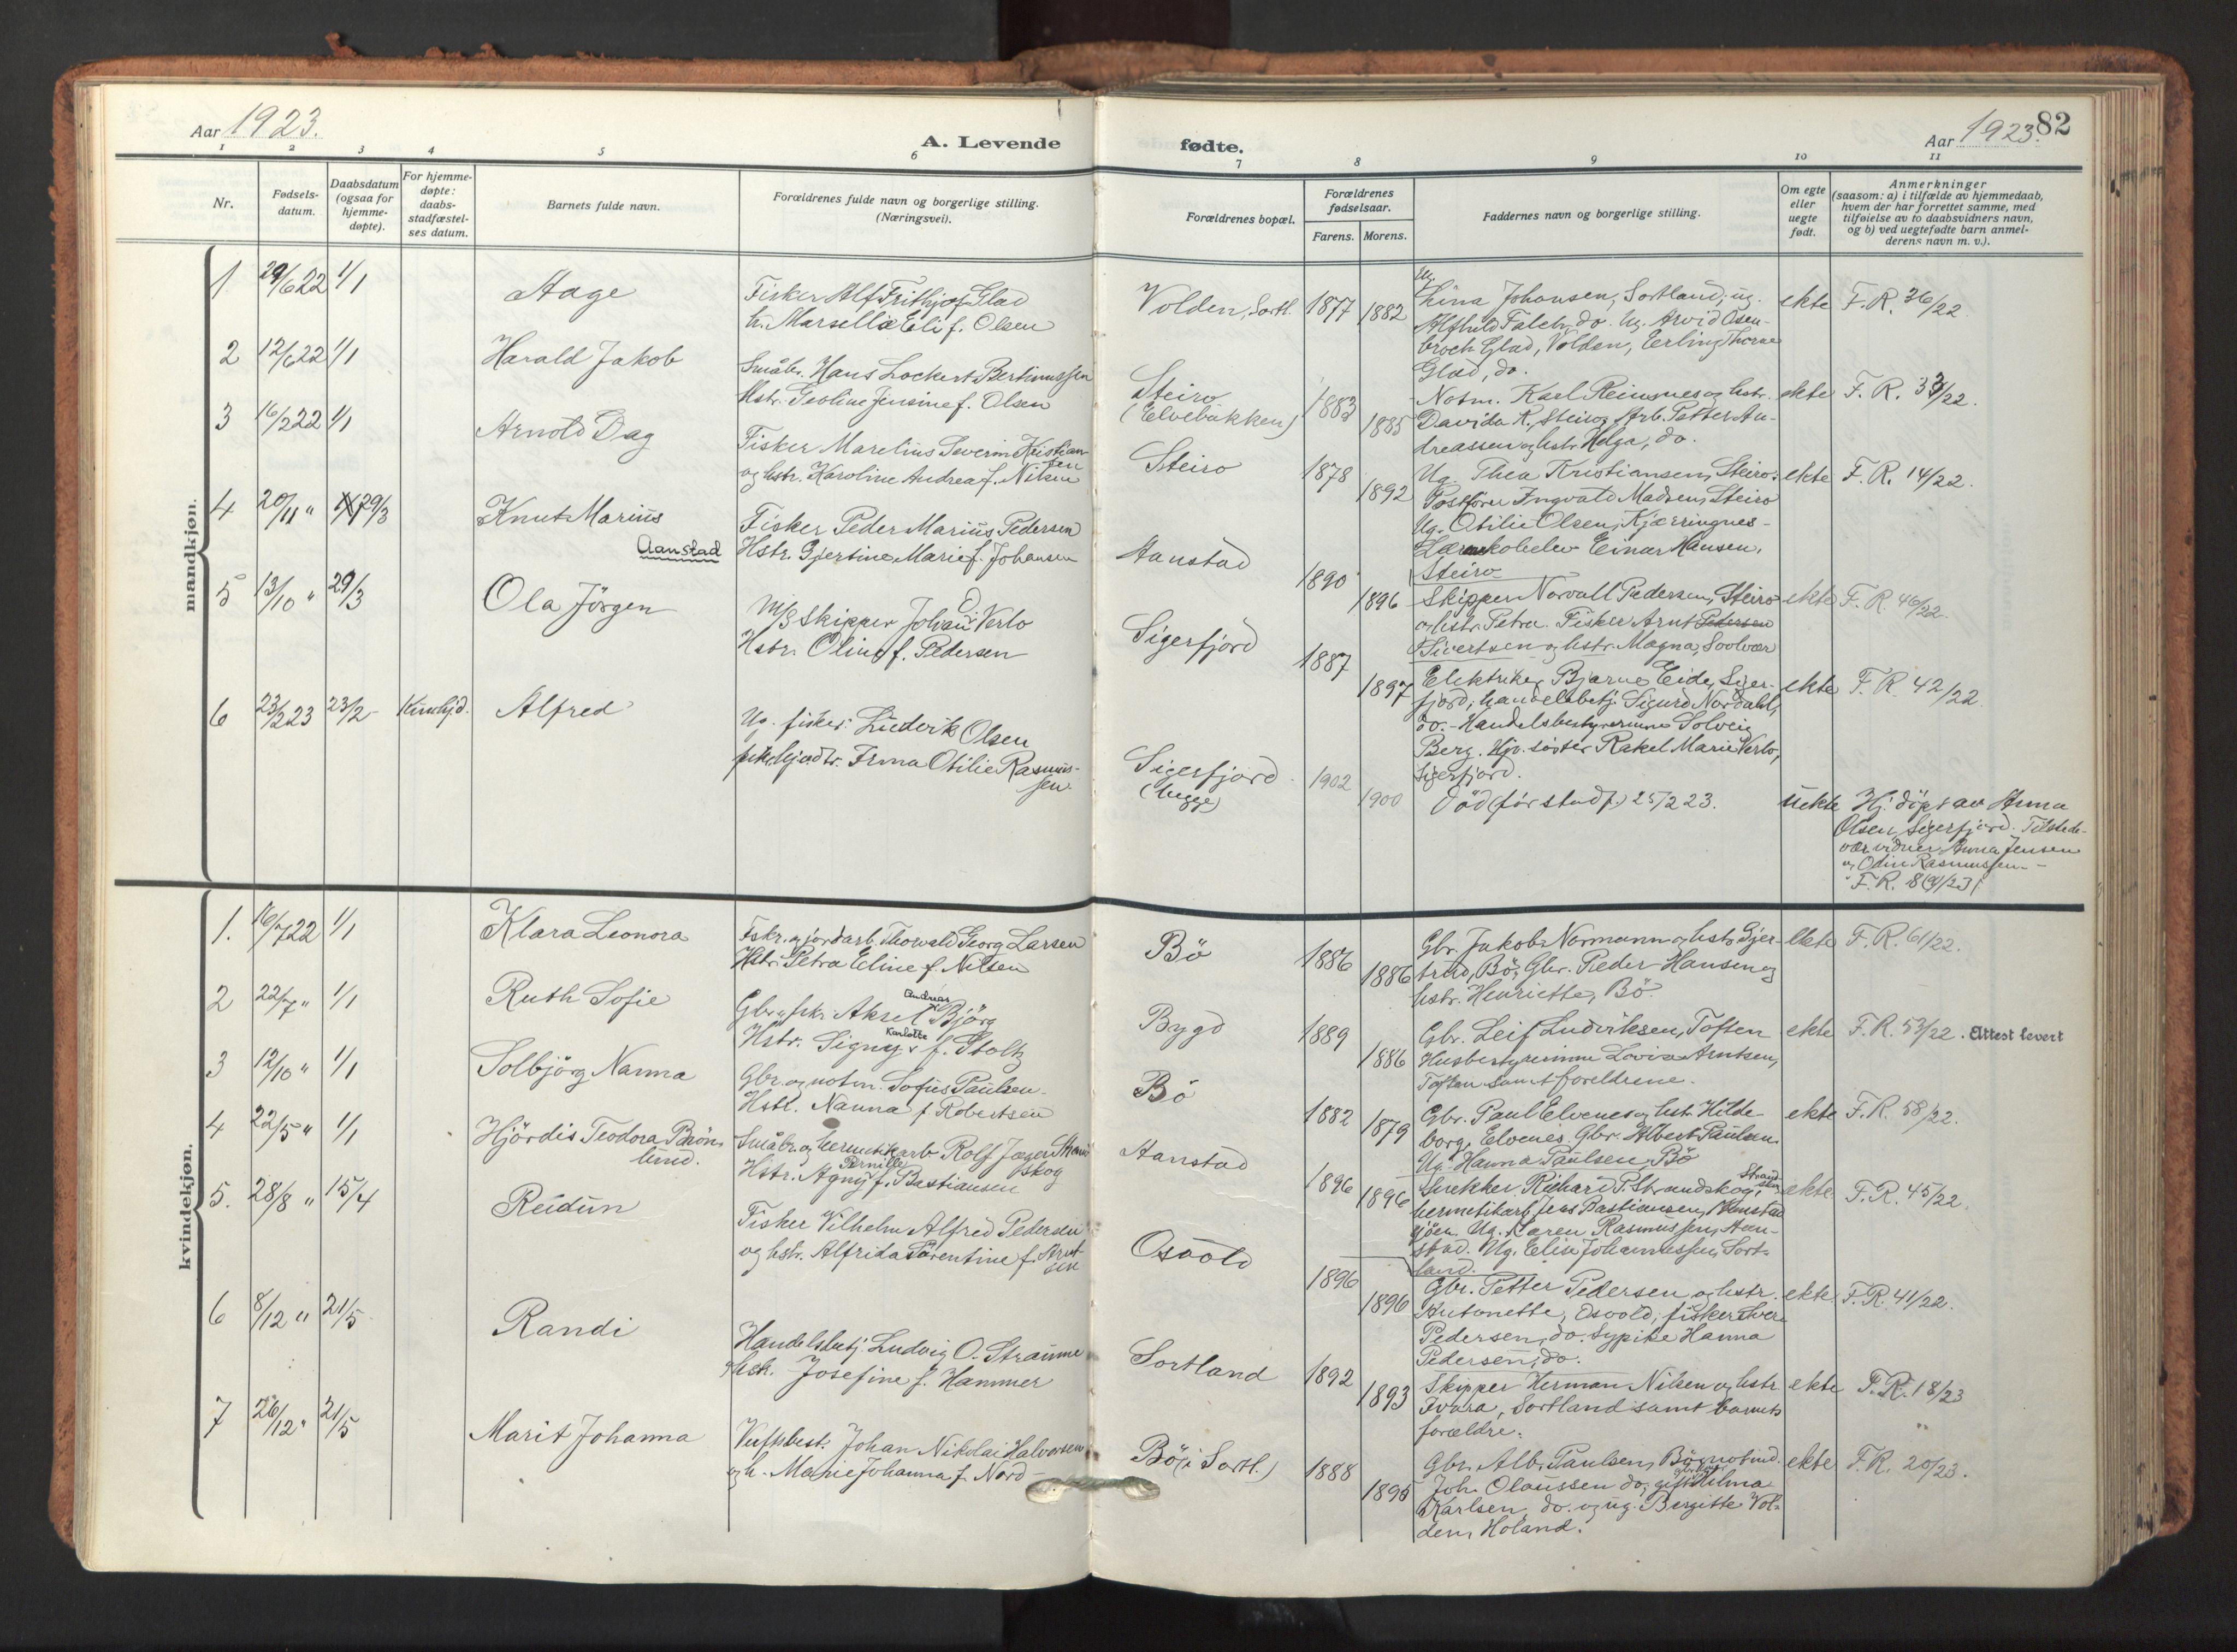 Aar 1923.
A. Levende
fødte.
Aar 1923.
82
1 2 3 4 5 6 7 8 9 10 11
Nr.
Fødsels-
datum.
Daabsdatum
(ogsaa for
hjemme-
døpte).
For hjemme-
døpte:
daabs-
stadfæstel-
ses datum.
Barnets fulde navn.
Forældrenes fulde navn og borgerlige stilling.
(Næringsvei).
Forældrenes bopæl.
Forældrenes
fødselsaar.
Farens. Morens.
Faddernes navn og borgerlige stilling.
Om egte
eller
uegte
født.
Anmerkninger
(saasom: a) i tilfælde av hjemmedaab,
hvem der har forrettet samme, med
tilføielse av to daabsvidners navn,
og b) ved uegtefødte barn anmel-
derens navn m. v.).
mandkjøn.
1 29/6 22 1/1 Aage
Fisker Alf Frithjof Glad
h. Marsellie Eli f. Olsen
Volden, Sortl. 1877 1882
Ug.
Lina Johansen, Sortland, ug.
Alfhild Falch, do. Ug. Arvid Osen-
broch Glad, Volden, Erling Thorne
Glad, do.
ekte F. R. 36/22.
2 12/6 22 1/1 Harald Jakob
Småbr. Hans Lockert Bertinussen
Hstr. Geoline Jensine f. Olsen
Steiro
(Elvebakken) 1883 1885
Notm. Karl Reinsnes og hstr.
Davida R., Steiro, Arb. Petter An-
dreassen og hstr. Helga, do.
ekte F. R. 33/22.
3 16/2 22 1/1 Arnold Dag
Fisker Marelius Severin Kristian-
sen
og hstr. Karoline Andrea f. Nilsen
Steiro 1878 1892
Ug. Thea Kristiansen, Steiro.
Postfører Ingvald Madsen, Steiro
Ug. Otilie Olsen, Kjærringnes-
Lærerskoleelev Einar Hansen,
Steiro
ekte F. R. 14/22.
4 20/11 " 29/3 Knut Marius
Aanstad
Fisker Peder Marius Pedersen
Hstr. Gjertine Marie f. Johansen
Aanstad 1890 1896
Skipper Norvall Pedersen, Steiro
og hstr. Petra. Fisker Arnt Pedersen
Sivertsen og hstr. Magna, Soolvær
ekte F. R. 46/22.
5 13/10 " 29/3 Ola Jörgen
M/S skipper Johan D. Verlo
Hstr. Oline f. Pedersen
Sigerfjord 1887 1897
Elektriker Bjarne Eide, Siger-
fjord, handelsbetj. Sigurd Nordahl,
do. - Handelsbestyrerinne Solveig
Berg. Hjv. søster Rakel Marie Verlo,
Sigerfjord.
ekte F. R. 42/22
6 23/2 23 23/2 Kun hjd. Alfred
Ug. fisker Ludvik Olsen
pike, hjv. dtr. Irma Otilie Rasmus-
sen.
Sigerfjord.
(begge) 1902 1900
Död (før stadf.) 25/2 23.
Uekte Hj. døpt av Anna
Olsen, Sigerfjord. Tilstede-
vær. vidner Anna Jensen
og Odin Rasmussen -
F. R. 8 (9)/23
kvindekjøn.
1. 16/7 22 1/1 Klara Leonora
Fskr. og jordarb. Thorvald Georg Larsen
Hstr. Petra Eline f. Nilsen
Bö 1886 1886
Gbr. Jakob Normann og hstr. Gjer-
trud, Bö, Gbr. Peder Hansen og
hstr. Henriette, Bö.
Ekte F. R. 61/22.
2 22/7 " 1/1 Ruth Sofie
Andreas
Gbr. og fskr. Aksel Björg
Karlotta
Hstr. Signy f. Stoltz
Bygd 1889 1886
Gbr. Leif Ludviksen, Toften
Husbestyrerinne Lovise Arntsen,
Toften samt foreldrene.
ekte F. R. 53/22. Attest levert
3 12/10 " 1/1 Solbjörg Nanna
Gbr. og notm. Sofus Paulsen.
Hstr. Nanna f. Robertsen
Bö 1882 1879
Gbr. Paul Elvenes og hstr. Hilde-
borg, Elvenes. Gbr. Albert Paulsen.
Ug. Hanna Paulsen, Bö
ekte F. R. 58/22.
4 22/5 " 1/1 Hjördis Teodora Brön-
lund.
Småbr. og hermetikarb Rolf Jæger Strand
skog
Pernille
Hstr. Agny f. Bastiansen
Aanstad 1896 1896
Strand-
skog
Snekker Richard P. Strandskog,
hermetikarb. Jens Bastiansen, Aanstad
sjöen. Ug. Karen Rasmussen, Aan-
stad. Ug. Elise Johannessen, Sort-
land.
ekte F. R. 45/22.
5. 28/8 " 15/4 Reidun
Fisker Vilhelm Alfred Pedersen
og hstr. Alfrida Sörentine f. Arnt-
sen
Osvold 1896 1896
Gbr. Petter Pedersen og hstr.
Antonette, Osvold, fisker Ivar
Pedersen, do. Sypike Hanna
Pedersen, do.
ekte. F. R. 41/22.
6 8/12 " 21/5 Randi
Handelsbetj. Ludvig O. Straume
Hstr. Josefine f. Hammer
Sortland 1892 1893
Skipper Herman Nilsen og hstr
Ivara, Sortland samt barnets
forældre.
ekte F. R. 18/23
7 26/12 " 21/5 Marit Johanna
Verftsbest. Johan Nikolai Halvorsen
og h. Marie Johanna f. Nord-
Bö (i Sortl.) 1888 1895
Gbr. Alb. Paulsen, Bö, notmd.
Joh. Olaussen do, gift Hilma
Karlsen, do. og ug. Bergitte Vol-
den, Holand.
ekte F. R. 20/23.